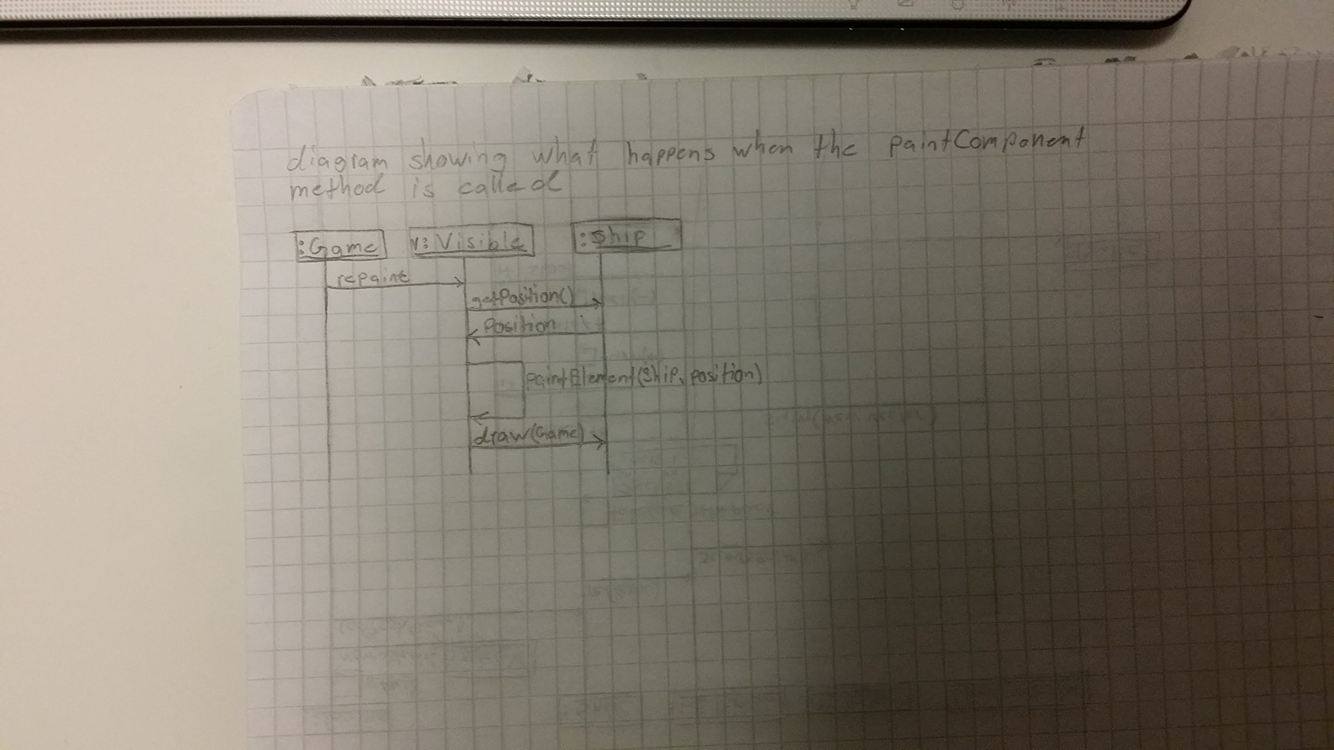 diagram showing what happens when the paintComponent
method is called
:Game v:Visible :Ship
repaint
getPosition()
Position
paintElement(Ship, position)
draw(Game)